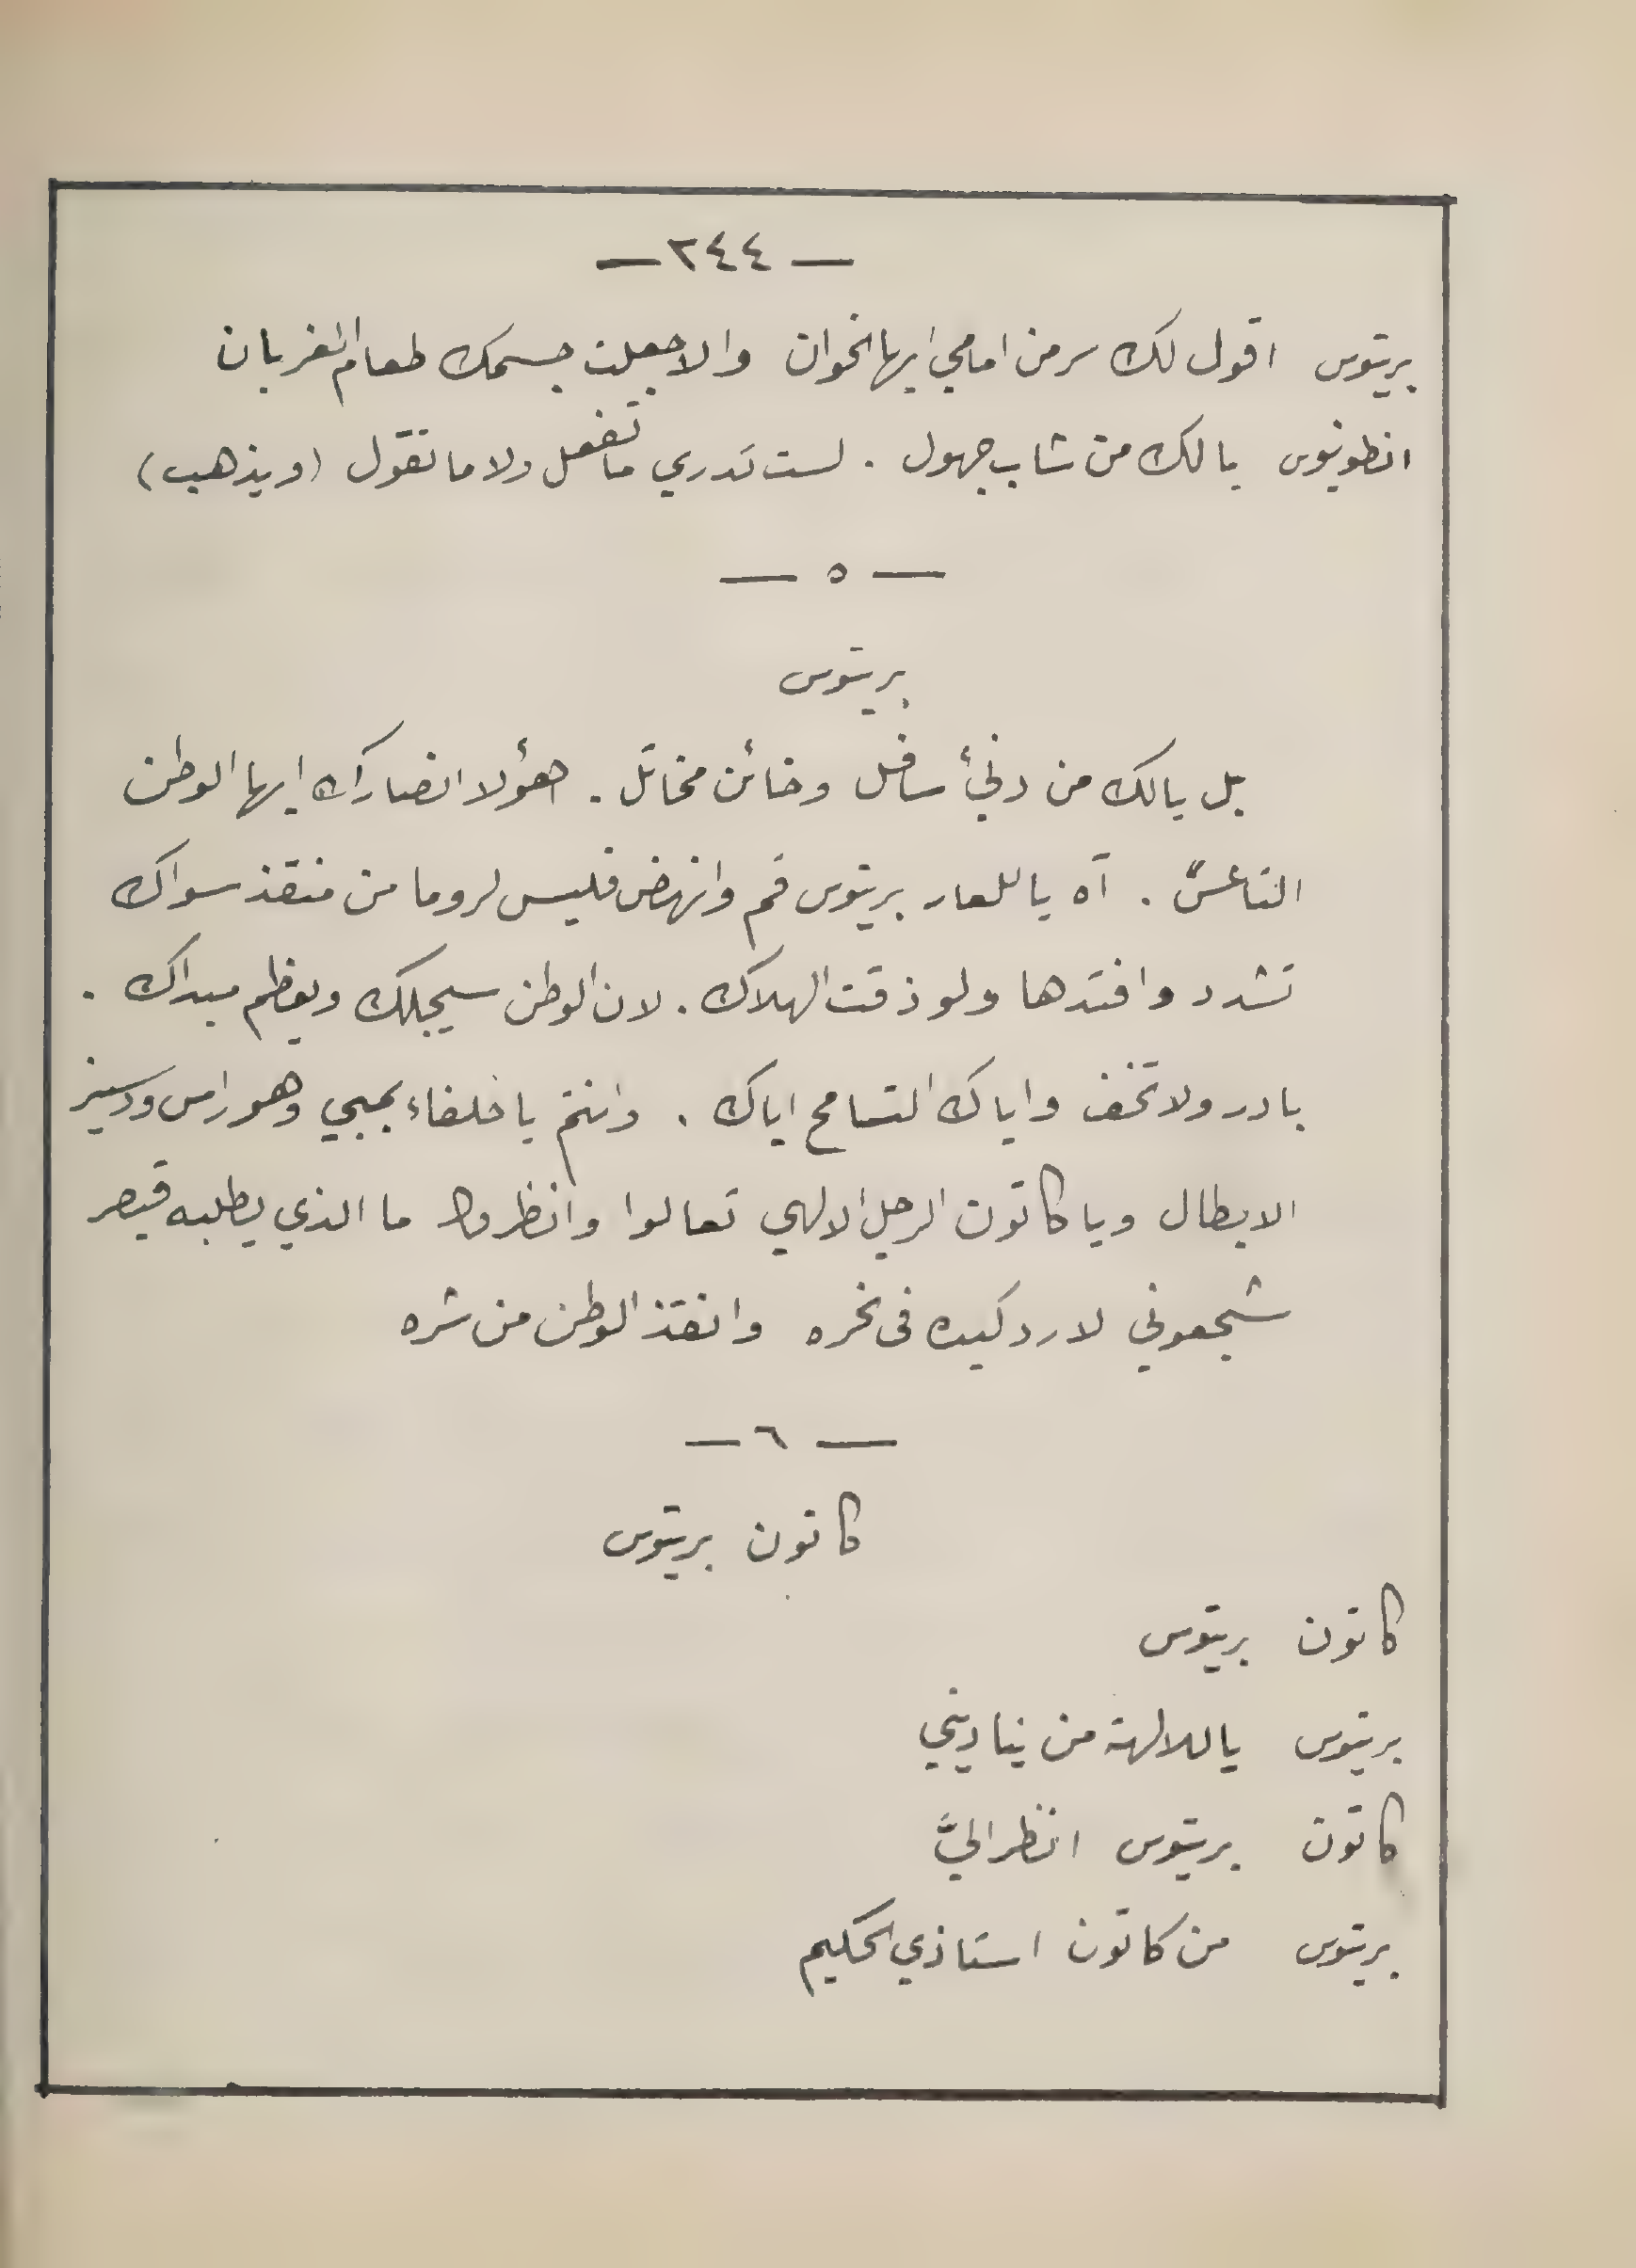 — ٢٤٤ —
بريتوس اقول لك سر من امامي ايها الخوان والا جعلت جسمك طعام الغربان
انطونيوس يا لك من شاب جهول . لست تدري ما تفعل ولا ما تقول (ويذهب)
— ٥ —
بريتوس
بل يالك من دنئ سافل وخائن مخاتل . هؤلا انصارك ايها الوطن
التاعس . آه يا للعار بريتوس قم وانهض فليس لروما من منقذ سواك
تشدد وافتدها ولو ذقت الهلاك . لان الوطن سيجلك ويعظم مبداك .
بادر ولا تخف واياك التسامح اياك . وانتم يا خلفاء بمبي وهوراس ودسيز
الابطال ويا كاتون الرجل الالهي تعالوا وانظروا ما الذي يطلبه قيصر
شجعوني لارد كيده فى نحره وانقذ الوطن من شره
— ٦ —
كاتون بريتوس
كاتون بريتوس
بريتوس ياللالهة من يناديني
كاتون بريتوس انظر اليَّ
بريتوس من كاتون استاذي الحكيم